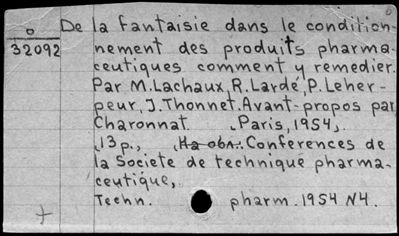 0
32092
De la fantaisie dans le condition-
nement des produits pharma-
ceutiques comment y remedier.
Par M.Lachaux, R.Lardé, P.Leher-
peur, J.Thonnet. Avant-propos par
Charonnat. Paris, 1954.
13p., На обл. Conferences de
la Societe de technique pharma-
ceutique,
Techn. pharm. 1954 N4.
+